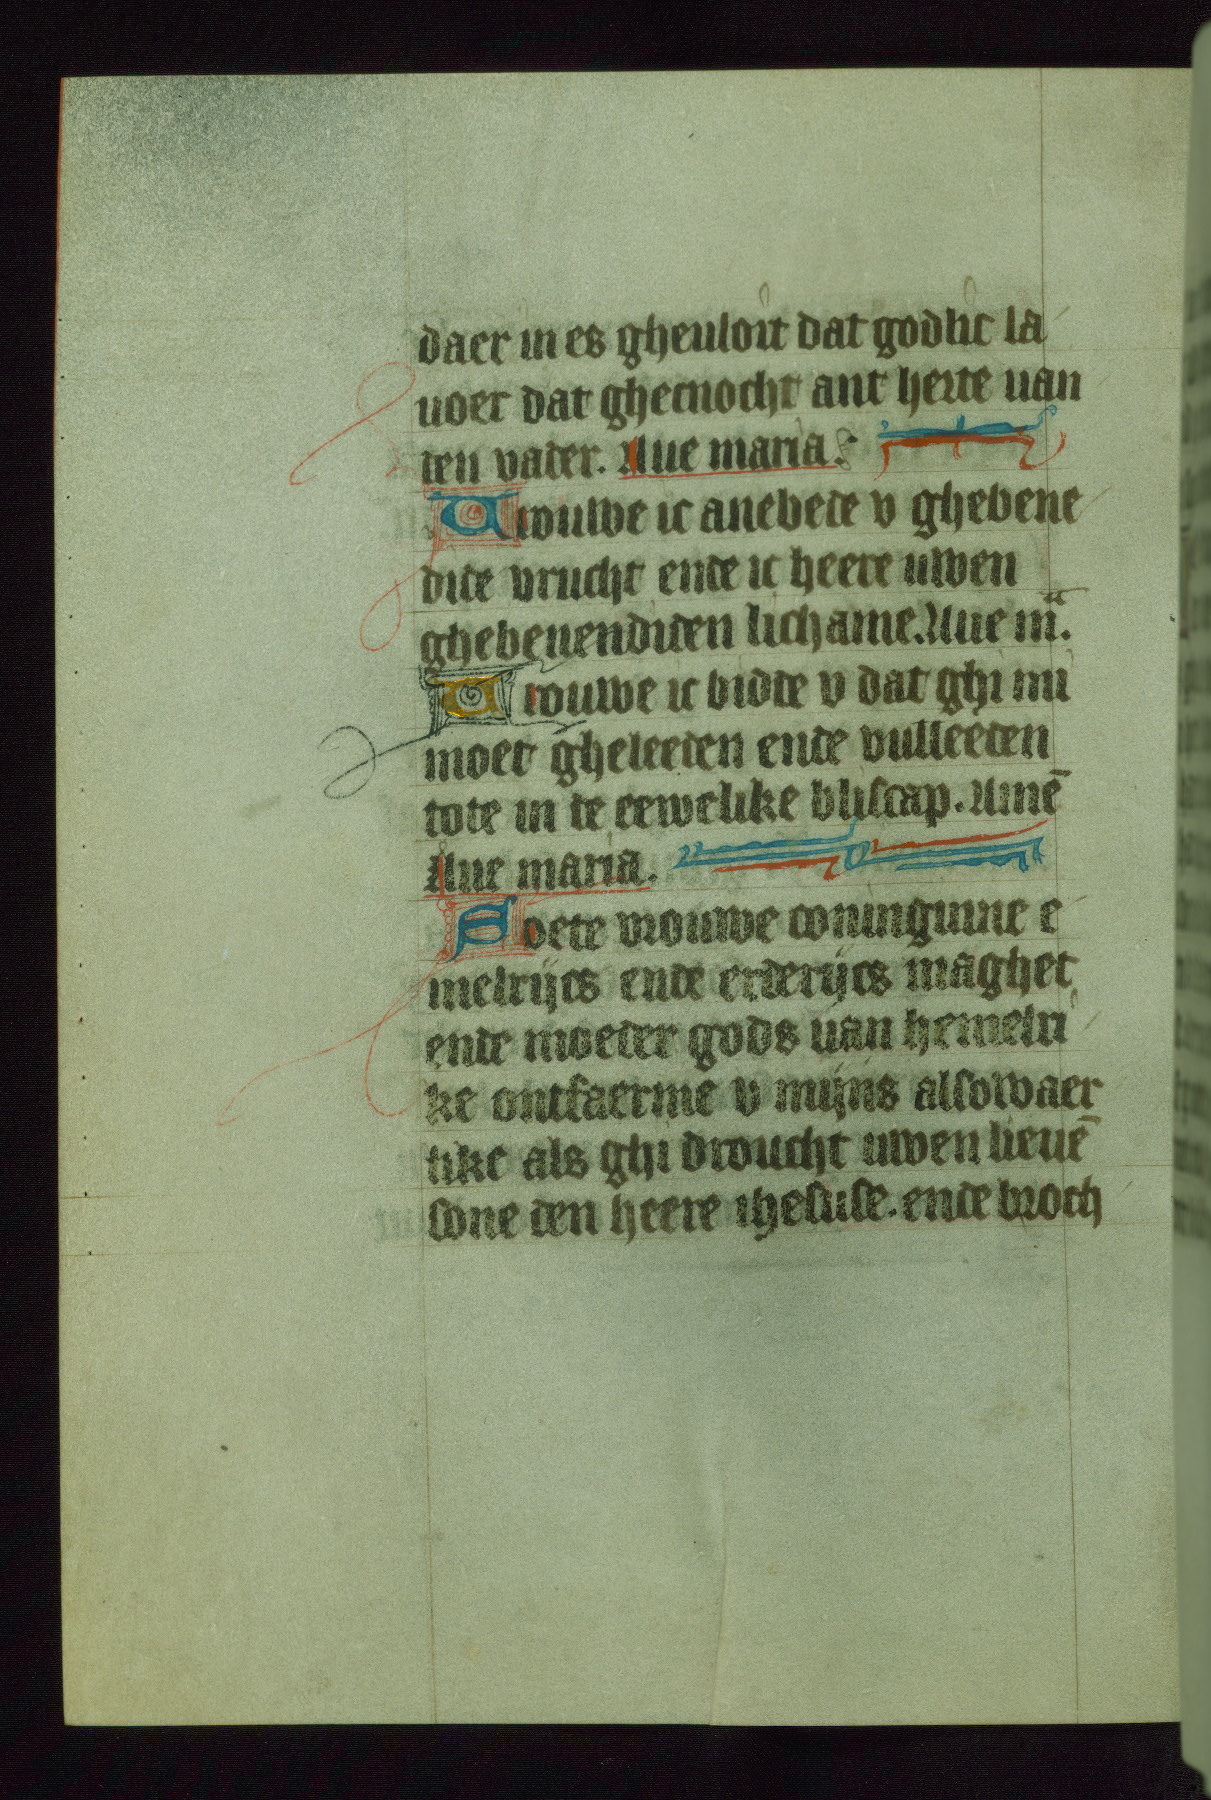 daer in es gheuloit dat godlic la
uoer dat ghecnocht ant herte uan
den vader. Aue maria.
Vrouwe ic anebede v ghebene
dide vrucht ende ic heere uwen
ghebenendiden lichame. Aue m̄.
Vrouwe ic bidde v dat ghi mi
moet gheleeden ende vulleeden
tote in de eewelike bliscap. Amē
Aue maria.
Soete vrouwe coninguine e
melrijcs ende erderijcs maghet
ende moeder gods uan hemelri
ke ontfaerme v mijns alsowaer
like als ghi droucht uwen lieuē
sone den heere ihesuse. ende broch